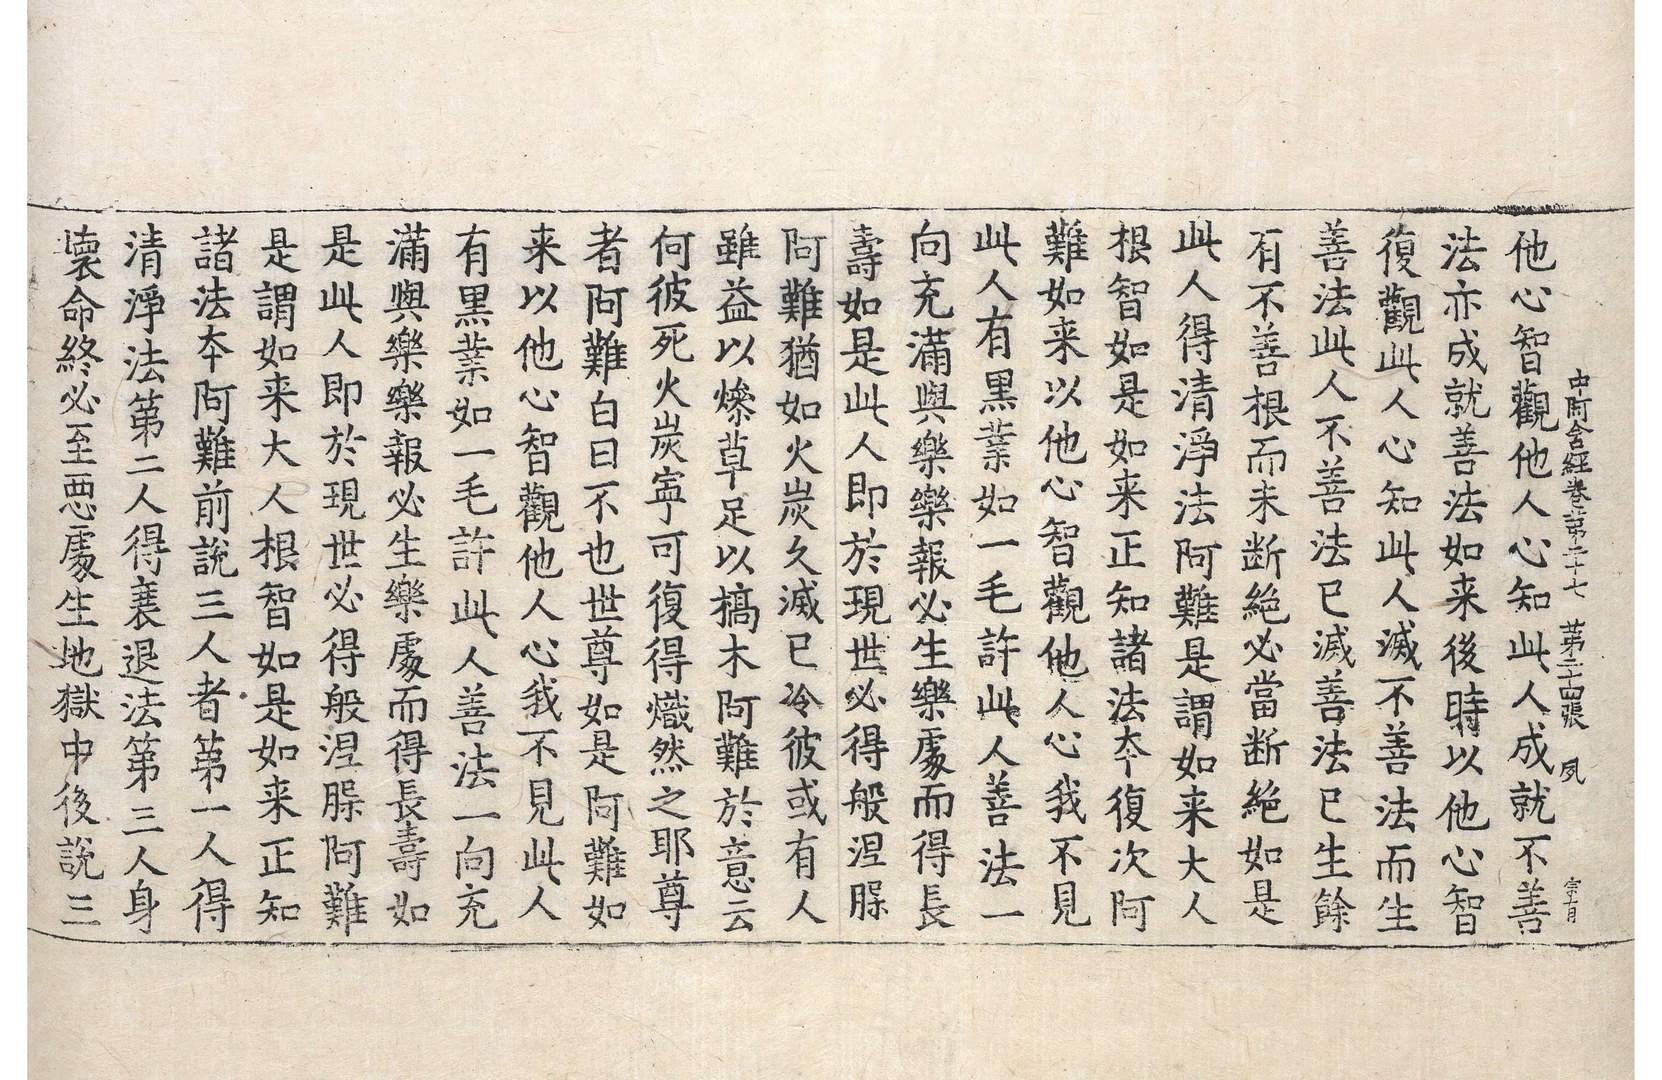 中阿含經卷第二十七　第二十四張　夙
他心智觀他人心知此人成就不善
法亦成就善法如来後時以他心智
復觀此人心知此人滅不善法而生
善法此人不善法已滅善法已生餘
有不善根而未断絕必當断絕如是
此人得清淨法阿難是謂如来大人
根智如是如来正知諸法夲復次阿
難如来以他心智觀他人心我不見
此人有黑業如一毛許此人善法一
向充滿與樂樂報必生樂處而得長
壽如是此人即於現世必得般涅槃
阿難猶如火炭久滅已冷彼或有人
雖益以燥草足以槁木阿難於意云
何彼死火炭寧可復得熾然之耶尊
者阿難白曰不也世尊如是阿難如
来以他心智觀他人心我不見此人
有黑業如一毛許此人善法一向充
滿與樂樂報必生樂處而得長壽如
是此人即於現世必得般涅槃阿難
是謂如来大人根智如是如来正知
諸法夲阿難前說三人者第一人得
清淨法第二人得衰退法第三人身
壞命終必至惡處生地獄中後說三